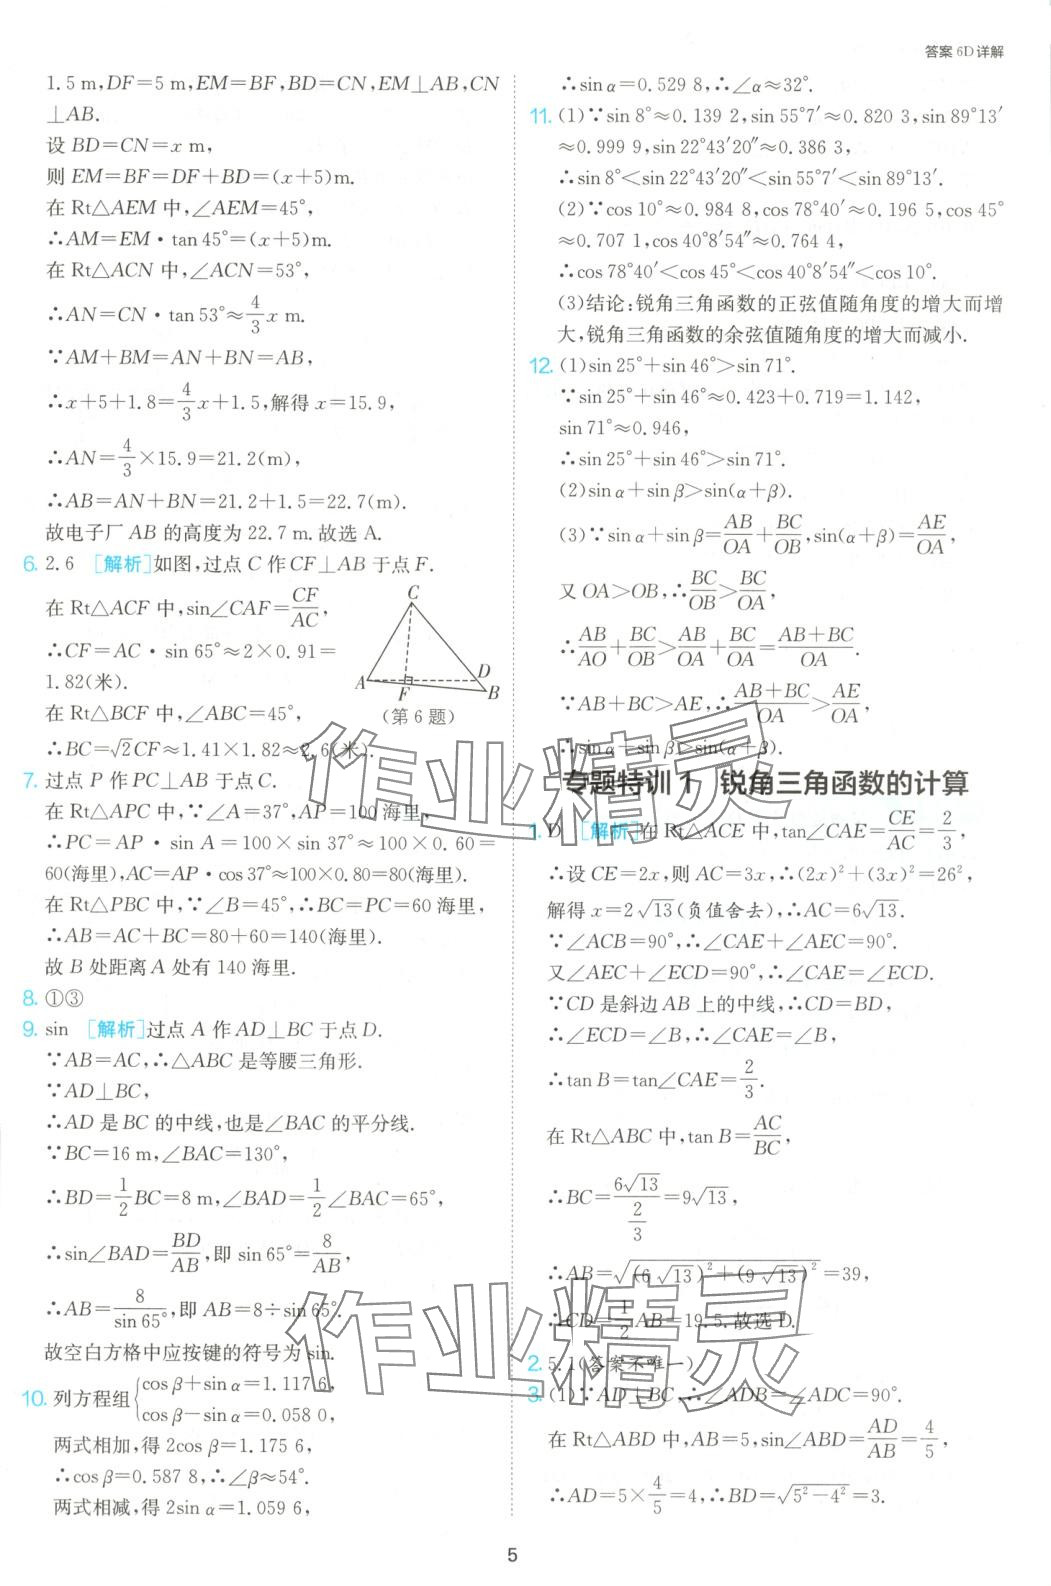 答案 6D 详解
1.5 m,DF=5 m,EM=BF,BD=CN,EM⊥AB,CN
⊥AB.
设 BD=CN=x m,
则 EM=BF=DF+BD=(x+5)m.
在 Rt△AEM 中,∠AEM=45°,
∴AM=EM·tan 45°=(x+5)m.
在 Rt△ACN 中,∠ACN=53°,
∴AN=CN·tan 53°≈4/3 x m.
∵AM+BM=AN+BN=AB,
∴x+5+1.8=4/3 x+1.5,解得 x=15.9,
∴AN=4/3×15.9=21.2(m),
∴AB=AN+BN=21.2+1.5=22.7(m).
故电子厂 AB 的高度为 22.7 m.故选 A.
6. 2.6 [解析]如图,过点 C 作 CF⊥AB 于点 F.
在 Rt△ACF 中,sin∠CAF=CF/AC,
∴CF=AC·sin 65°≈2×0.91=
1.82(米).
在 Rt△BCF 中,∠ABC=45°,
∴BC=√2CF≈1.41×1.82≈2.6(米).
C
A
F
D
B
(第 6 题)
7. 过点 P 作 PC⊥AB 于点 C.
在 Rt△APC 中,∵∠A=37°,AP=100 海里,
∴PC=AP·sin A=100×sin 37°≈100×0.60=
60(海里),AC=AP·cos 37°≈100×0.80=80(海里).
在 Rt△PBC 中,∵∠B=45°,∴BC=PC=60 海里,
∴AB=AC+BC=80+60=140(海里).
故 B 处距离 A 处有 140 海里.
8. ①③
9. sin [解析]过点 A 作 AD⊥BC 于点 D.
∵AB=AC,∴△ABC 是等腰三角形.
∵AD⊥BC,
∴AD 是 BC 的中线,也是∠BAC 的平分线.
∵BC=16 m,∠BAC=130°,
∴BD=1/2 BC=8 m,∠BAD=1/2∠BAC=65°,
∴sin∠BAD=BD/AB,即 sin 65°=8/AB,
∴AB=8/sin 65°,即 AB=8÷sin 65°.
故空白方格中应按键的符号为 sin.
10. 列方程组{cos β+sin α=1.117 6,
cos β−sin α=0.058 0,
两式相加,得 2cos β=1.175 6,
∴cos β=0.587 8,∴∠β≈54°.
两式相减,得 2sin α=1.059 6,
∴sin α=0.529 8,∴∠α≈32°.
11. (1)∵sin 8°≈0.139 2,sin 55°7′≈0.820 3,sin 89°13′
≈0.999 9,sin 22°43′20″≈0.386 3,
∴sin 8°<sin 22°43′20″<sin 55°7′<sin 89°13′.
(2)∵cos 10°≈0.984 8,cos 78°40′≈0.196 5,cos 45°
≈0.707 1,cos 40°8′54″≈0.764 4,
∴cos 78°40′<cos 45°<cos 40°8′54″<cos 10°.
(3)结论:锐角三角函数的正弦值随角度的增大而增
大,锐角三角函数的余弦值随角度的增大而减小.
12. (1)sin 25°+sin 46°>sin 71°.
∵sin 25°+sin 46°≈0.423+0.719=1.142,
sin 71°≈0.946,
∴sin 25°+sin 46°>sin 71°.
(2)sin α+sin β>sin(α+β).
(3)∵sin α+sin β=AB/OA+BC/OB,sin(α+β)=AE/OA,
又 OA>OB,∴BC/OB>BC/OA,
∴AB/AO+BC/OB>AB/OA+BC/OA=AB+BC/OA.
∵AB+BC>AE,∴AB+BC/OA>AE/OA,
∴sin α+sin β>sin(α+β).
专题特训 1 锐角三角函数的计算
1. D [解析]在 Rt△ACE 中,tan∠CAE=CE/AC=2/3,
∴设 CE=2x,则 AC=3x,∴(2x)²+(3x)²=26²,
解得 x=2√13(负值舍去),∴AC=6√13.
∵∠ACB=90°,∴∠CAE+∠AEC=90°.
又∠AEC+∠ECD=90°,∴∠CAE=∠ECD.
∵CD 是斜边 AB 上的中线,∴CD=BD,
∴∠ECD=∠B,∴∠CAE=∠B,
∴tan B=tan∠CAE=2/3.
在 Rt△ABC 中,tan B=AC/BC,
∴BC=6√13/(2/3)=9√13,
∴AB=√((6√13)²+(9√13)²)=39,
∴CD=1/2 AB=19.5.故选 D.
2. 5.1(答案不唯一)
3. (1)∵AD⊥BC,∴∠ADB=∠ADC=90°.
在 Rt△ABD 中,AB=5,sin∠ABD=AD/AB=4/5,
∴AD=5×4/5=4,∴BD=√(5²−4²)=3.
作业精灵
作业精灵
5